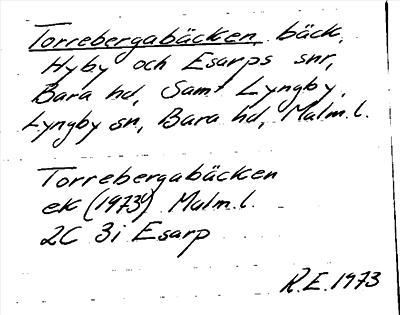 Torrebergabäcken, bäck,
Hyby och Esarps snr,
Bara hd, Samt Lyngby,
Lyngby sn, Bara hd, Malm.l.
Torrebergabäcken
ek (1973) Malm.l.
2C 3i Esarp
R.E.1973